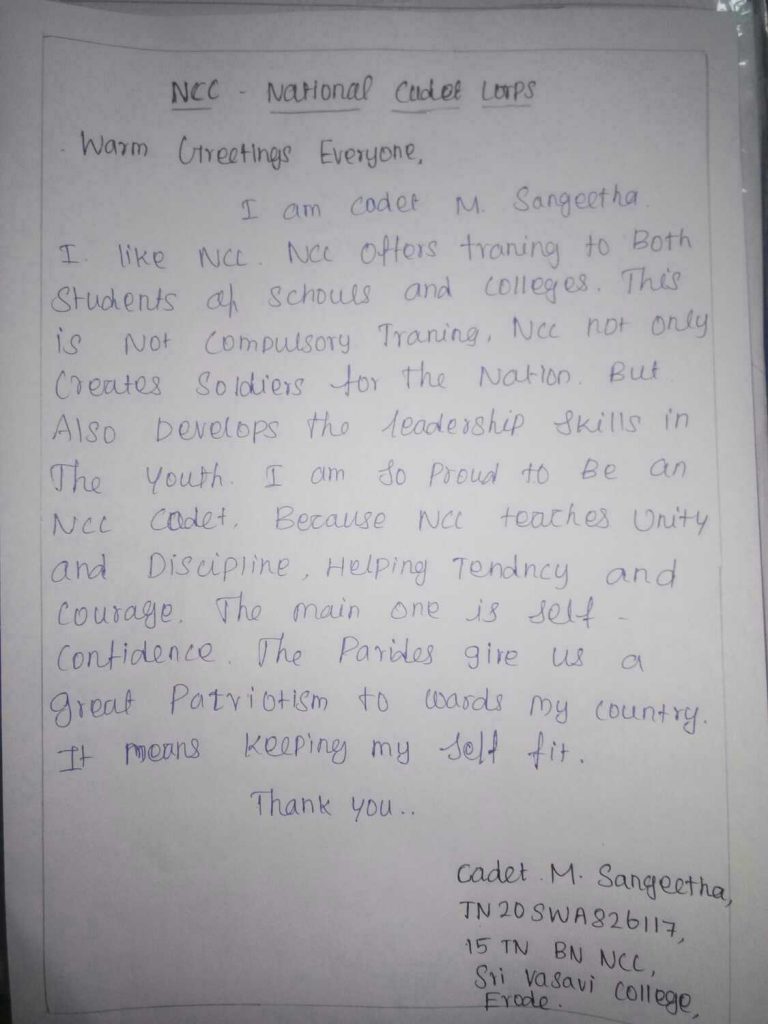 NCC - National Cadet Corps
Warm Greetings Everyone,
I am cadet M. Sangeetha.
I. like NCC. NCC offers traning to Both
Students of schouls and colleges. This
is Not Compulsory Traning. NCC not only
Creates Soldiers for the Nation. But
Also Develops the leadership skills in
The youth. I am so proud to Be an
NCC Cadet. Because NCC teaches Unity
and Discipline, Helping Tendncy and
Courage. The main one is self -
Confidence. The Parides give us a
great Patriotism to wards my country.
It means keeping my self fit.
Thank you..
Cadet M. Sangeetha,
TN20SWA826117,
15 TN BN NCC,
Sri Vasavi college,
Erode.